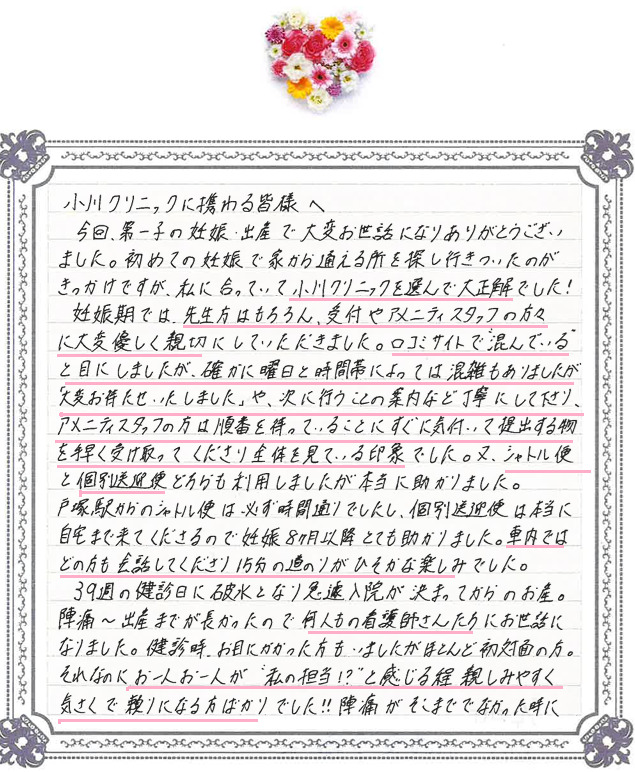 小川クリニックに携わる皆様へ
今回、第一子の妊娠・出産で大変お世話になりありがとうござい
ました。初めての妊娠で家から通える所を探し行きついたのが
きっかけですが、私に合っていて小川クリニックを選んで大正解でした!
妊娠期では、先生方はもちろん、受付やアメニティスタッフの方々
に大変優しく親切にしていただきました。口コミサイトで"混んでいる"
と目にしましたが、確かに曜日と時間帯によっては混雑もありましたが
「大変お待たせいたしました」や、次に行うことの案内など丁寧にして下さり、
アメニティスタッフの方は順番を待っていることにすぐに気付いて提出する物
を早く受け取ってくださり全体を見ている印象でした。又、シャトル便
と個別送迎便どちらも利用しましたが本当に助かりました。
戸塚駅からのシャトル便は必ず時間通りでしたし、個別送迎便は本当に
自宅まで来てくださるので妊娠8ヶ月以降とても助かりました。車内では
どの方も会話してくださり15分の道のりがひそかな楽しみでした。
39週の健診日に破水となり急遽入院が決まってからのお産。
陣痛〜出産までが長かったので何人もの看護師さんたちにお世話に
なりました。健診時、お目にかかった方もいましたがほとんど初対面の方。
それなのにお一人お一人が"私の担当!?"と感じる程親しみやすく
気さくで頼りになる方ばかりでした!!陣痛がそこまででなかった時に